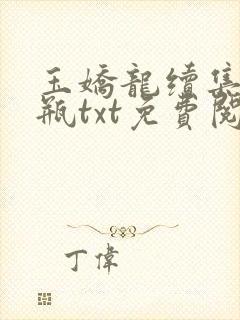 玉嬌龍續集
瓶txt免費閱
丁偉